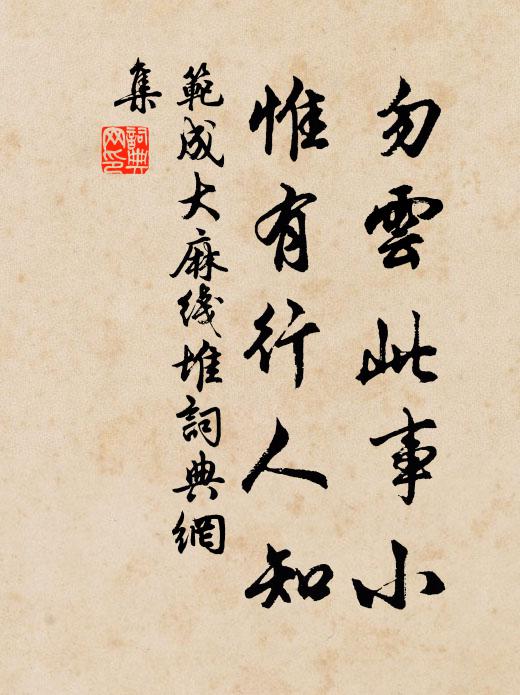 勿雲此事小
惟有行人知
範成大麻綫堆詞典網
集
詞典
网印